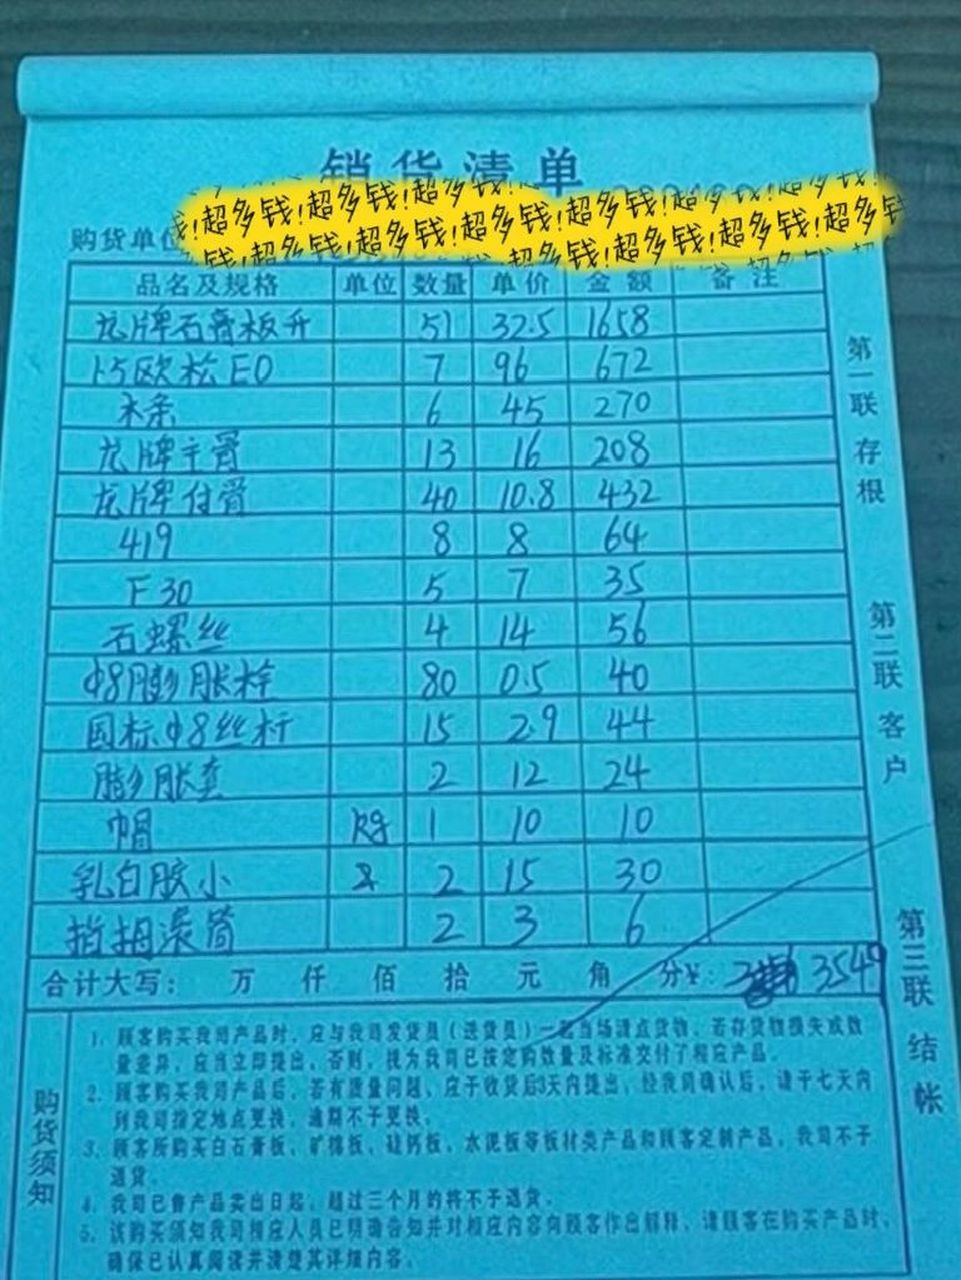 销货清单
!超多钱!超多钱!超多钱!
钱!超多钱!超多钱!超多钱!超多钱!超多钱!
购货单位
钱!超多钱!超多钱!超多钱!超多钱!超多
品名及规格 单位 数量 单价 金额 备注
龙牌石膏板 51 32.5 1658
15欧松E0 7 96 672
木条 6 45 270
龙牌主骨 13 16 208
龙牌付骨 40 10.8 432
419 8 8 64
F30 5 7 35
石螺丝 4 14 56
Φ8膨胀栓 80 0.5 40
国标Φ8丝杆 15 2.9 44
膨胀套 2 12 24
帽 kg 1 10 10
乳白胶小 2 15 30
拇滚筒 2 3 6
合计大写: 万 仟 佰 拾 元 角 分¥: 3549
购货须知
1. 顾客购买我司产品时,应与我司发货员(送货员)一起当场清点货物,若存货物损失或数
量差异,应当立即提出,否则,视为我司已按定购数量及标准交付了相应产品。
2. 顾客购买我司产品后,若有质量问题,应于收货后3天内提出,经我司确认后,请于七天内
到我司指定地点更换,逾期不予更换。
3. 顾客所购买白石膏板、矿棉板、硅钙板、水泥板等板材类产品和顾客定制产品,我司不予
退货。
4. 我司已售产品卖出日起,超过三个月的将不予退货。
5. 该购买须知我司相应人员已明确告知并对相应内容向顾客作出解释,请顾客在购买产品时,
确保已认真阅读并清楚其详细内容。
第一联 存根
第二联 客户
第三联 结帐